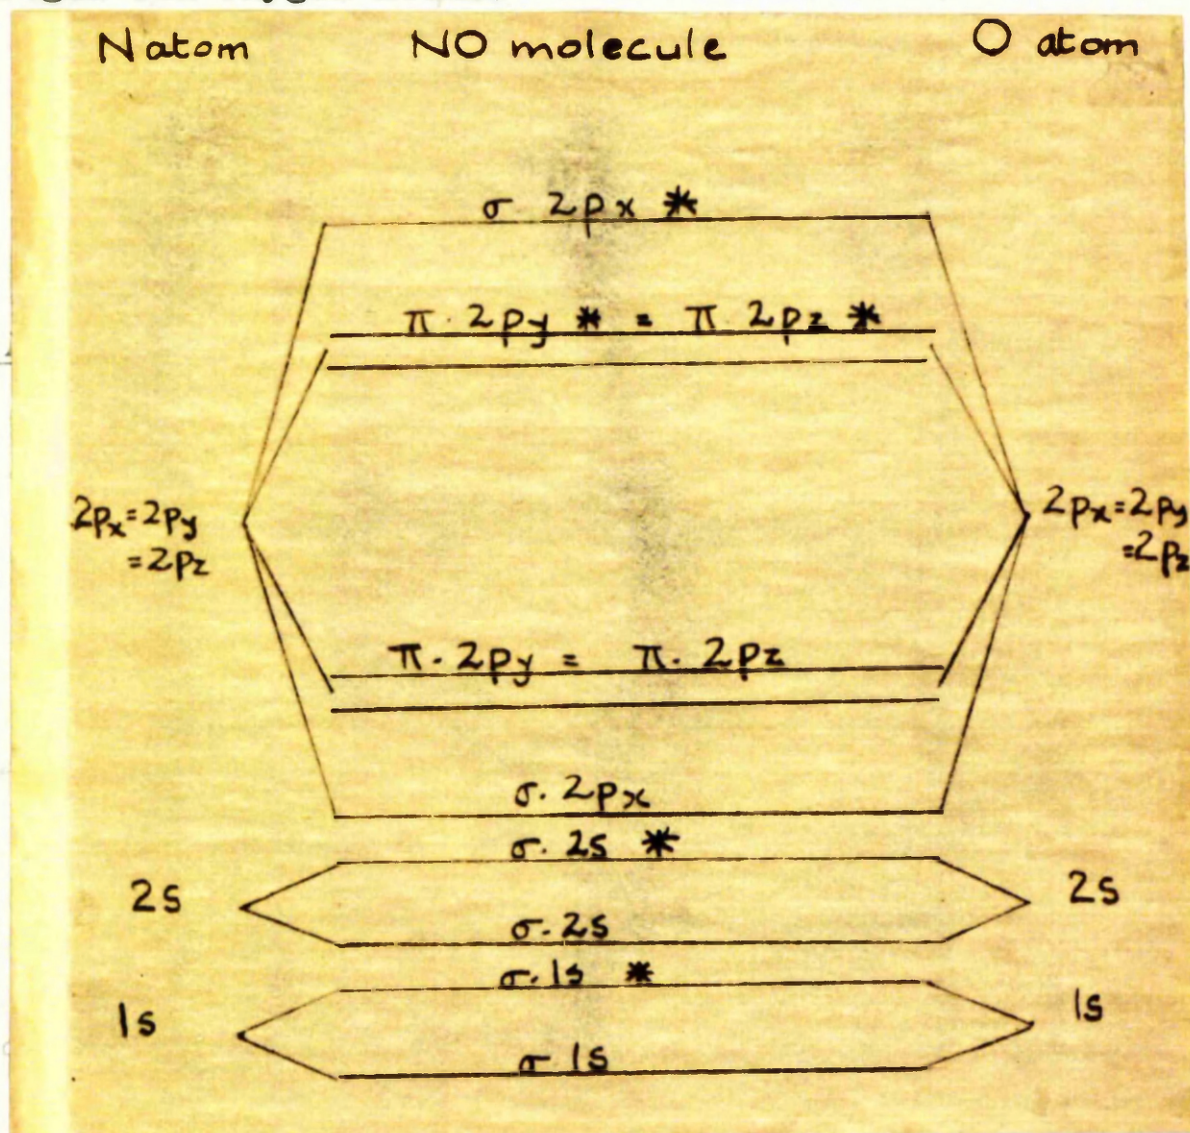 N atom NO molecule O atom
σ 2px *
π · 2py * = π 2pz *
2px=2py 2px=2py
=2pz =2pz
π· 2py = π· 2pz
σ· 2px
σ· 2s *
2s 2s
σ· 2s
σ· 1s *
1s 1s
σ 1s